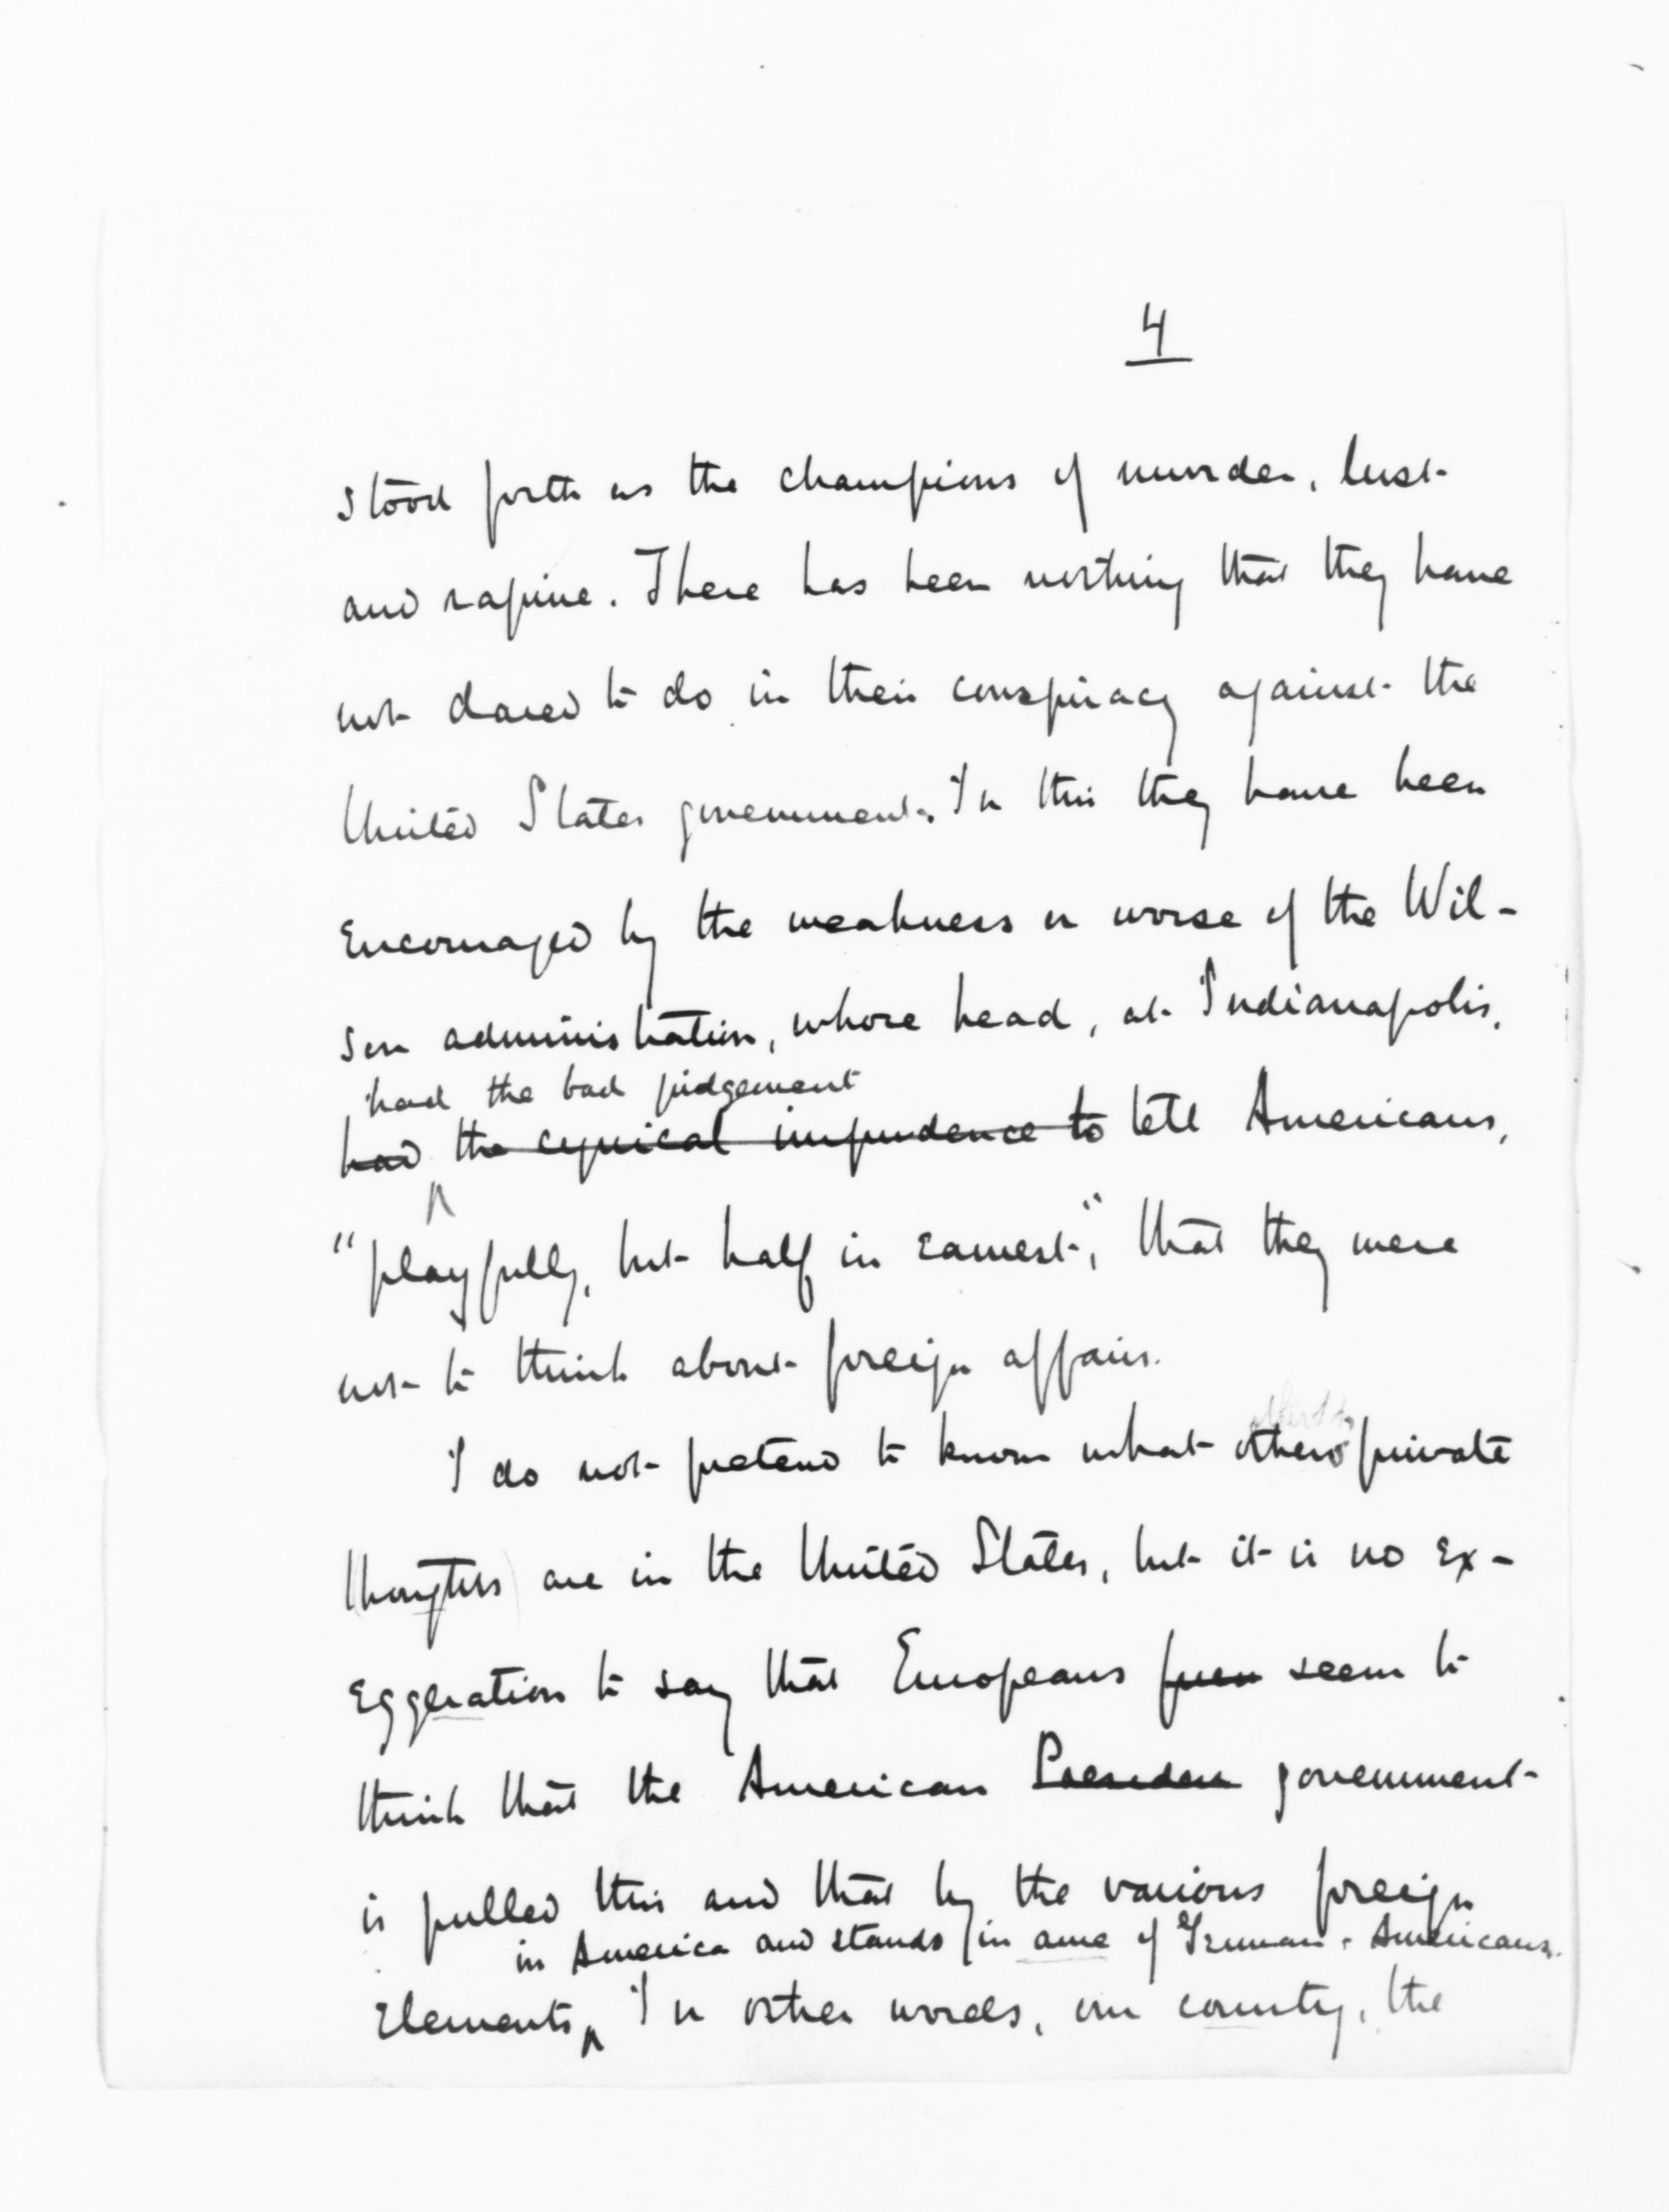 4
stood forth as the champions of murder, lust
and rapine. There has been nothing that they have
not dared to do in their conspiracy against the
United States government. In this they have been
encouraged by the weakness or worse of the Wil-
son administration, whose head, at Indianapolis,
had the bad judgement
had the cynical impudence to tell Americans,
"playfully, but half in earnest", that they were
not to think about foreign affairs.
I do not pretend to know what others private
thoughts are in the United States, but it is no ex-
eggeration to say that Europeans seem to
think that the American government
is pulled this and that by the various foreign
in America and stands in awe of German-Americans.
elements. In other words, our country, the